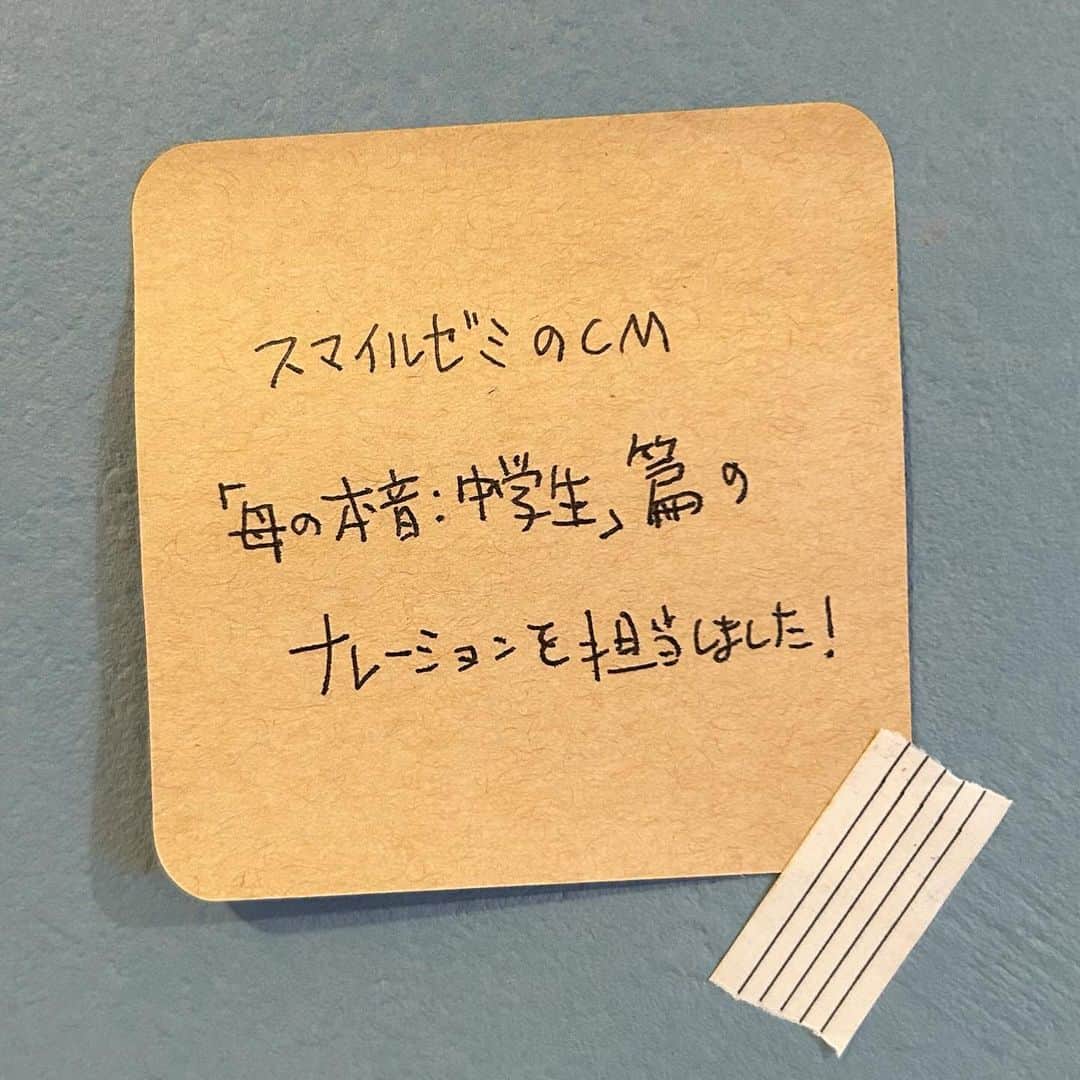 スマイルゼミのCM
「母の本音:中学生」篇の
ナレーションを担当しました!